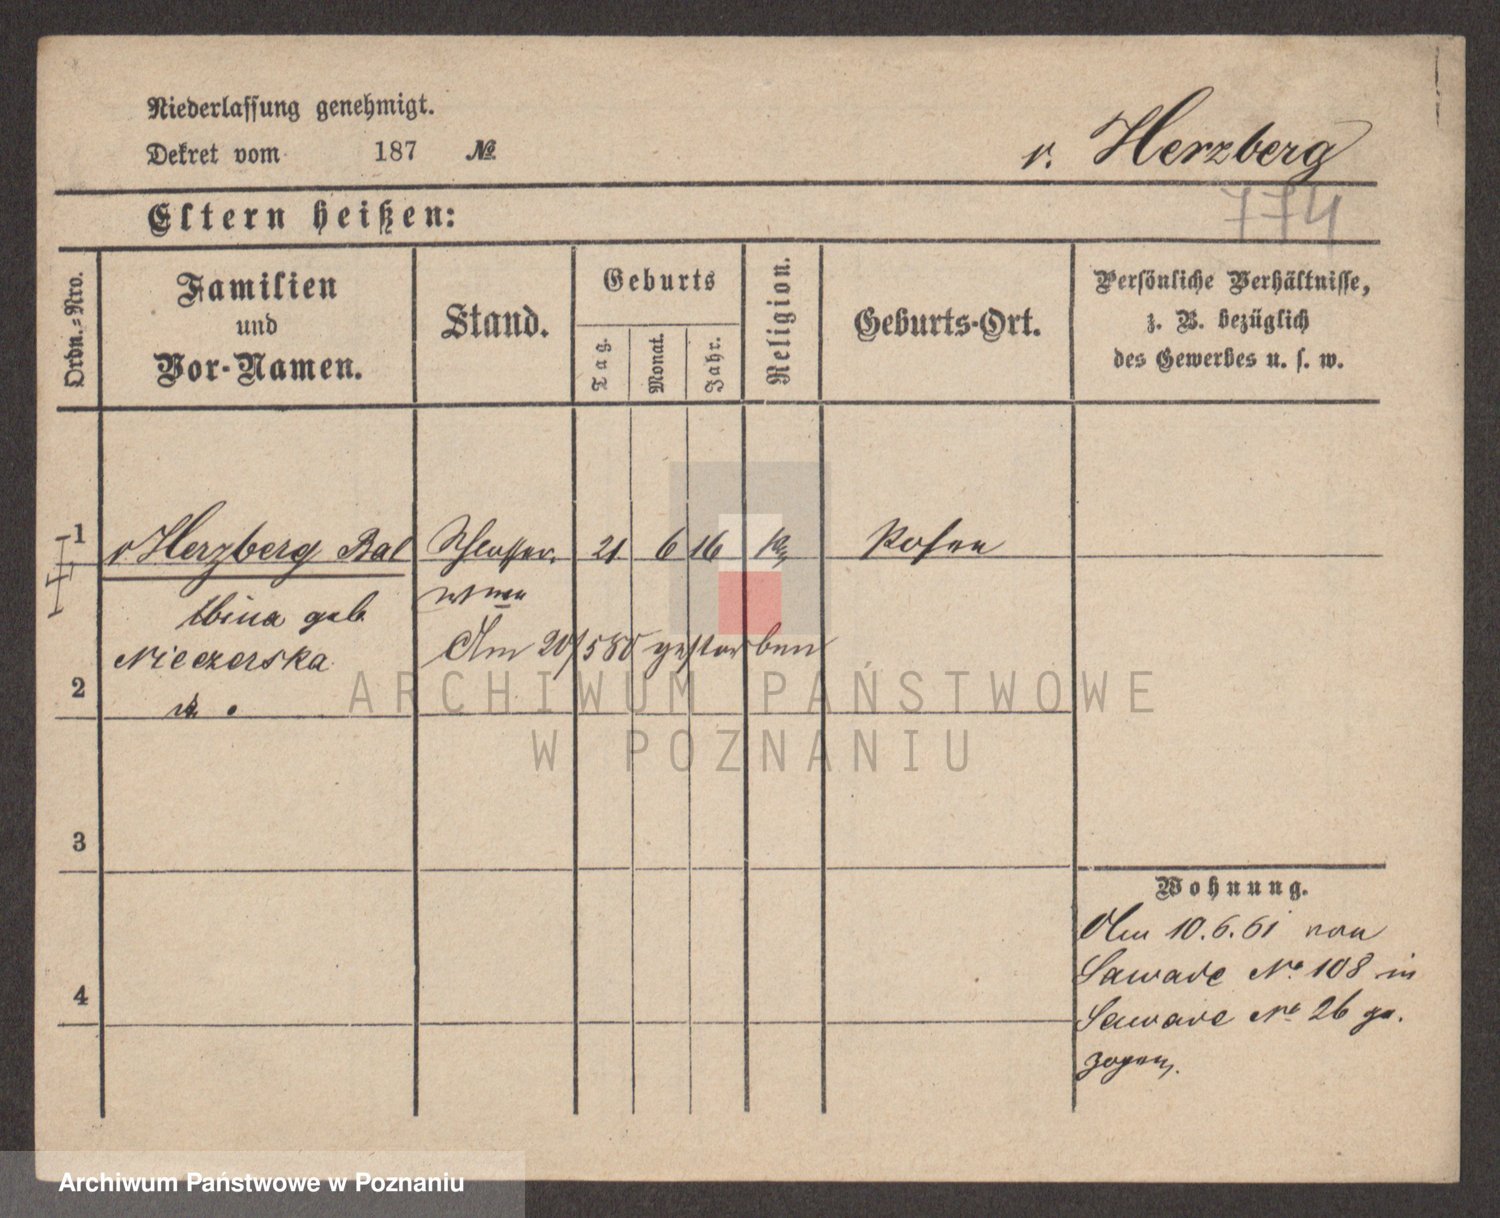 Niederlassung genehmigt.
Dekret vom 187 №
v. Herzberg
774
Eltern heißen:
Ordn.-Nro.
Familien
und
Vor-Namen.
Stand.
Geburts
Tag.
Monat.
Jahr.
Religion.
Geburts-Ort.
Persönliche Verhältnisse,
z. B. bezüglich
des Gewerbes u. s. w.
1
v Herzberg Bal
Schlosser
21. 6 16
Posen
bina geb
Am 20/5 80 gestorben
Nieczerska
2
3
4
Wohnung.
Am 10.6.61 von
Sawade No 108 in
Sawade No 26 ge.
zogen.
ARCHIWUM PAŃSTWOWE
W POZNANIU
Archiwum Państwowe w Poznaniu